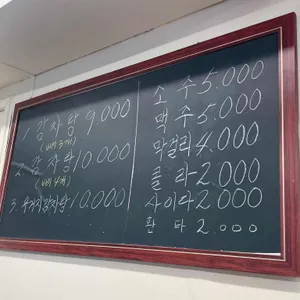 감자탕 9.000
(뼈 3개)
맛 감자탕 10.000
(뼈 4개)
3. 우거지감자탕 10.000
소주 5.000
맥주 5.000
막걸리 4.000
콜라 2.000
사이다 2.000
환타 2.000